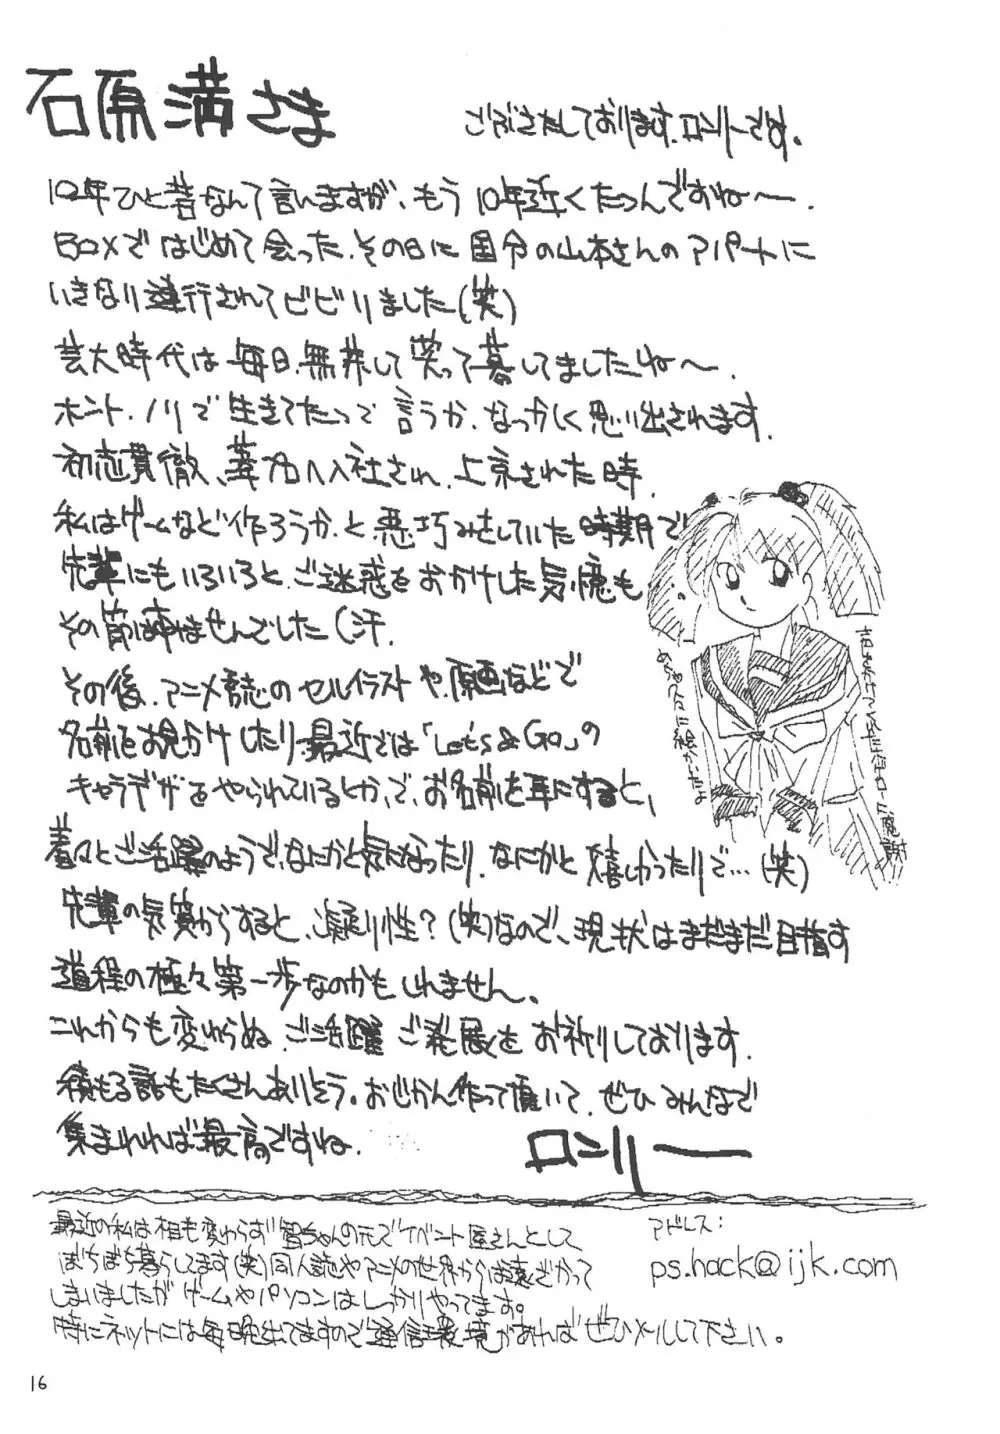 石原満さま
ごぶさたしております、ロンリーです。
10年ひと昔なんて言いますが、もう10年近くたつんですね〜.
BOXではじめて会った、その日に国分の山本さんのアパートに
いきなり連行されてビビリました(笑)
芸大時代は毎日、無茶して笑って暮してましたね〜.
ホント、ノリで生きてたって言うか、なつかしく思い出されます.
初志貫徹、葦プロへ入社され、上京された時.
私はゲームなど作ろうか、と悪巧みをしていた時期で
先輩にもいろいろと、ご迷惑をおかけした気憶も.
その節はすみませんでした(汗.
その後、アニメ誌のセルイラストや、原画などで
名前をお見かけしたり、最近では「Let's & Go」の
キャラデザをやられているとか、で、お名前を耳にすると、
着々とご活躍のようで、なにかと気になったり、なにかと嬉しかったりで…(笑)
先輩の気質からすると、凝り性?(笑)なので、現状はまだまだ目指す
道程の極々第一歩なのかもしれません。
これからも変わらぬ、ご活躍ご発展をお祈りしております.
積もる話もたくさんありそう。おじかん作って頂いて、ぜひみんなで
集まれれば最高ですね.
ロンリー
最近の私は相も変わらず智ちゃんの元でイベント屋さんとして
ぼちぼち暮らしてます(笑)同人誌やアニメの世界からは遠ざかって
しまいましたがゲームやパソコンはしっかりやってます。
特にネットには毎晩出てますので通信環境があればぜひメールして下さい。
アドレス:
ps.hack@ijk.com
16